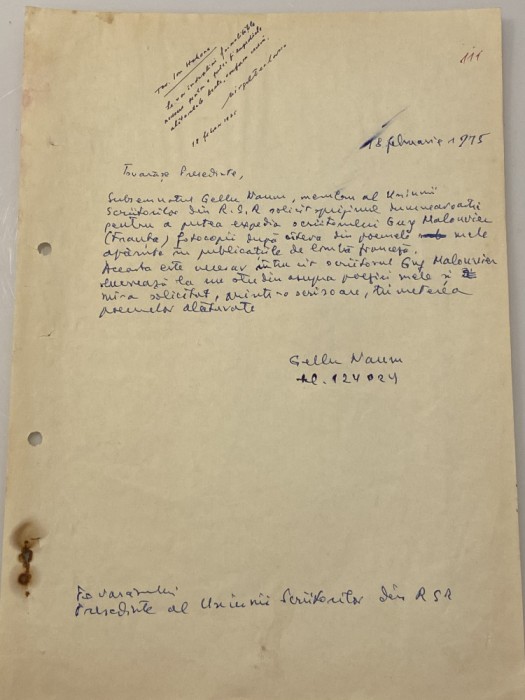 Tov. Ion Hobana
111
18 februarie 1975
Tovarășe Președinte,
Subsemnatul Gellu Naum, membru al Uniunii
Scriitorilor din R.S.R solicit sprijinul dumneavoastră
pentru a putea expedia scriitorului Guy Malouvier
(Franța) fotocopii după câteva din poemele mele
apărute în publicațiile de limbă franceză.
Aceasta este necesar întru cît scriitorul Guy Malouvier
lucrează la un studiu asupra poeziei mele și
mi-a solicitat, printr-o scrisoare, trimiterea
poemelor alăturate
Gellu Naum
tel. 124024
Tovarășului
Președinte al Uniunii Scriitorilor din RSR